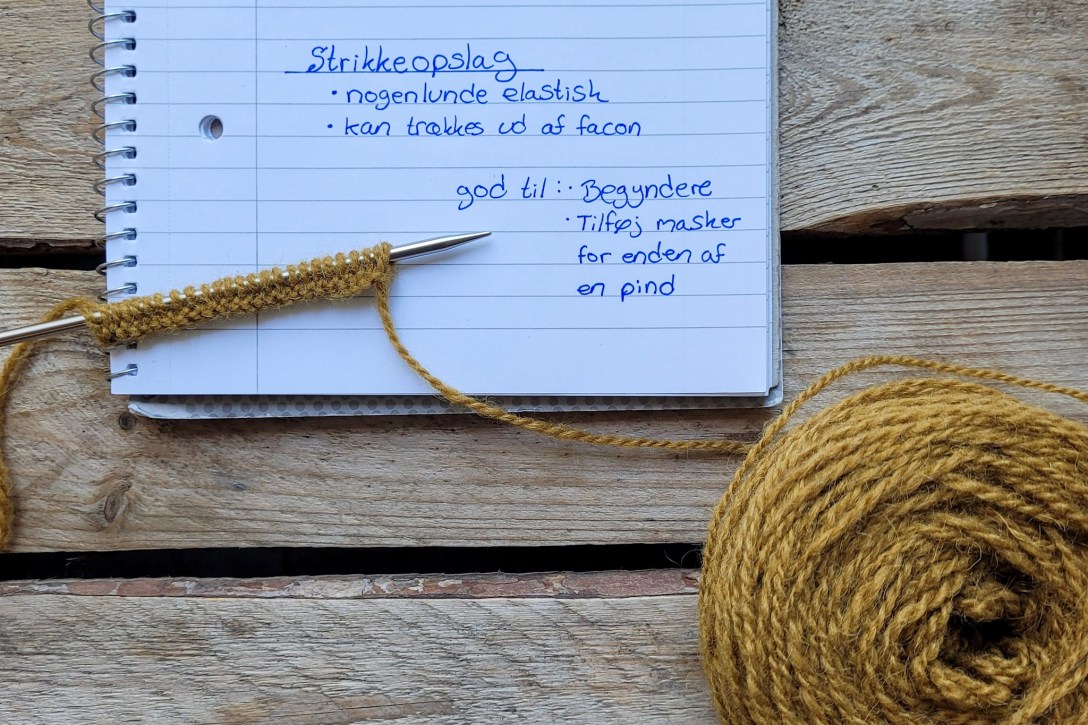 Strikkeopslag
· nogenlunde elastisk
· kan trækkes ud af facon
god til: · Begyndere
· Tilføj masker
for enden af
en pind